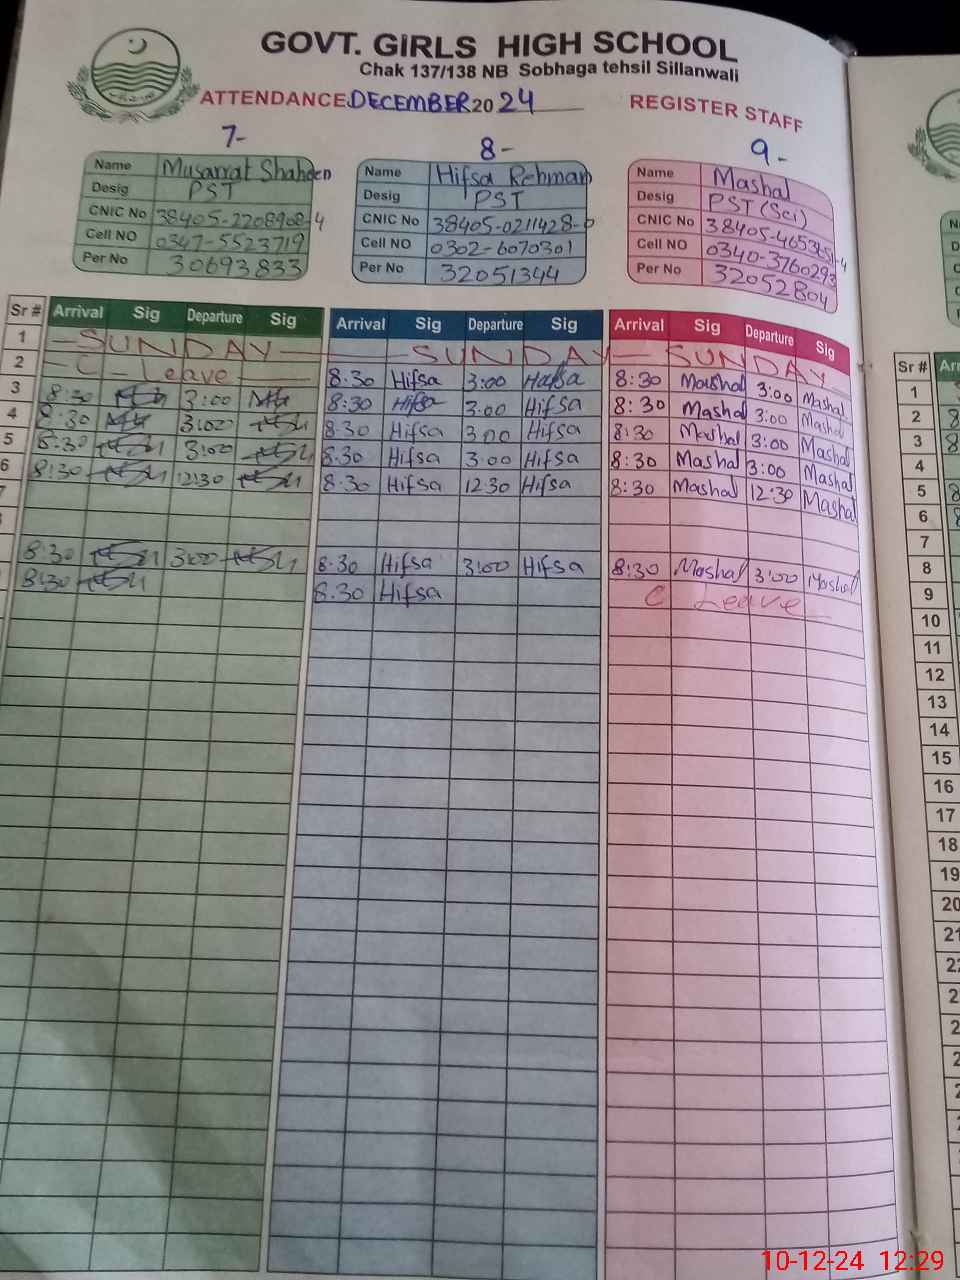 GOVT. GIRLS HIGH SCHOOL
Chak 137/138 NB Sobhaga tehsil Sillanwali
ATTENDANCE DECEMBER 2024 REGISTER STAFF
7- 8- 9-
Name Musarrat Shaheen Name Hifsa Rehman Name Mashal
Desig PST Desig PST Desig PST (Sci)
CNIC No 38405-2208908-4 CNIC No 38405-0211428-0 CNIC No
Cell NO 0347-5523719 Cell NO 0302-6070301 Cell NO 0340-3760293
Per No 30693833 Per No 32051344 Per No 32052804
Sr # Arrival Sig Departure Sig Arrival Sig Departure Sig Arrival Sig Departure Sig Sr #
1 SUNDAY SUNDAY SUNDAY 1
2 C-Leave 8:30 Hifsa 3:00 Hafsa 8:30 Mashal 3:00 Mashal 2
3 8:30 3:00 8:30 Hifsa 3:00 Hifsa 8:30 Mashal 3:00 Mashal 3
4 8:30 3:00 8:30 Hifsa 3:00 Hifsa 8:30 Mashal 3:00 Mashal 4
5 8:30 3:00 8:30 Hifsa 3:00 Hifsa 8:30 Mashal 3:00 Mashal 5
6 8:30 12:30 8:30 Hifsa 12:30 Hifsa 8:30 Mashal 12:30 Mashal 6
7
8:30 3:00 8:30 Hifsa 3:00 Hifsa 8:30 Mashal 3:00 Mashal 8
8:30 8:30 Hifsa C Leave 9
10
11
12
13
14
15
16
17
18
19
20
21
10-12-24 12:29